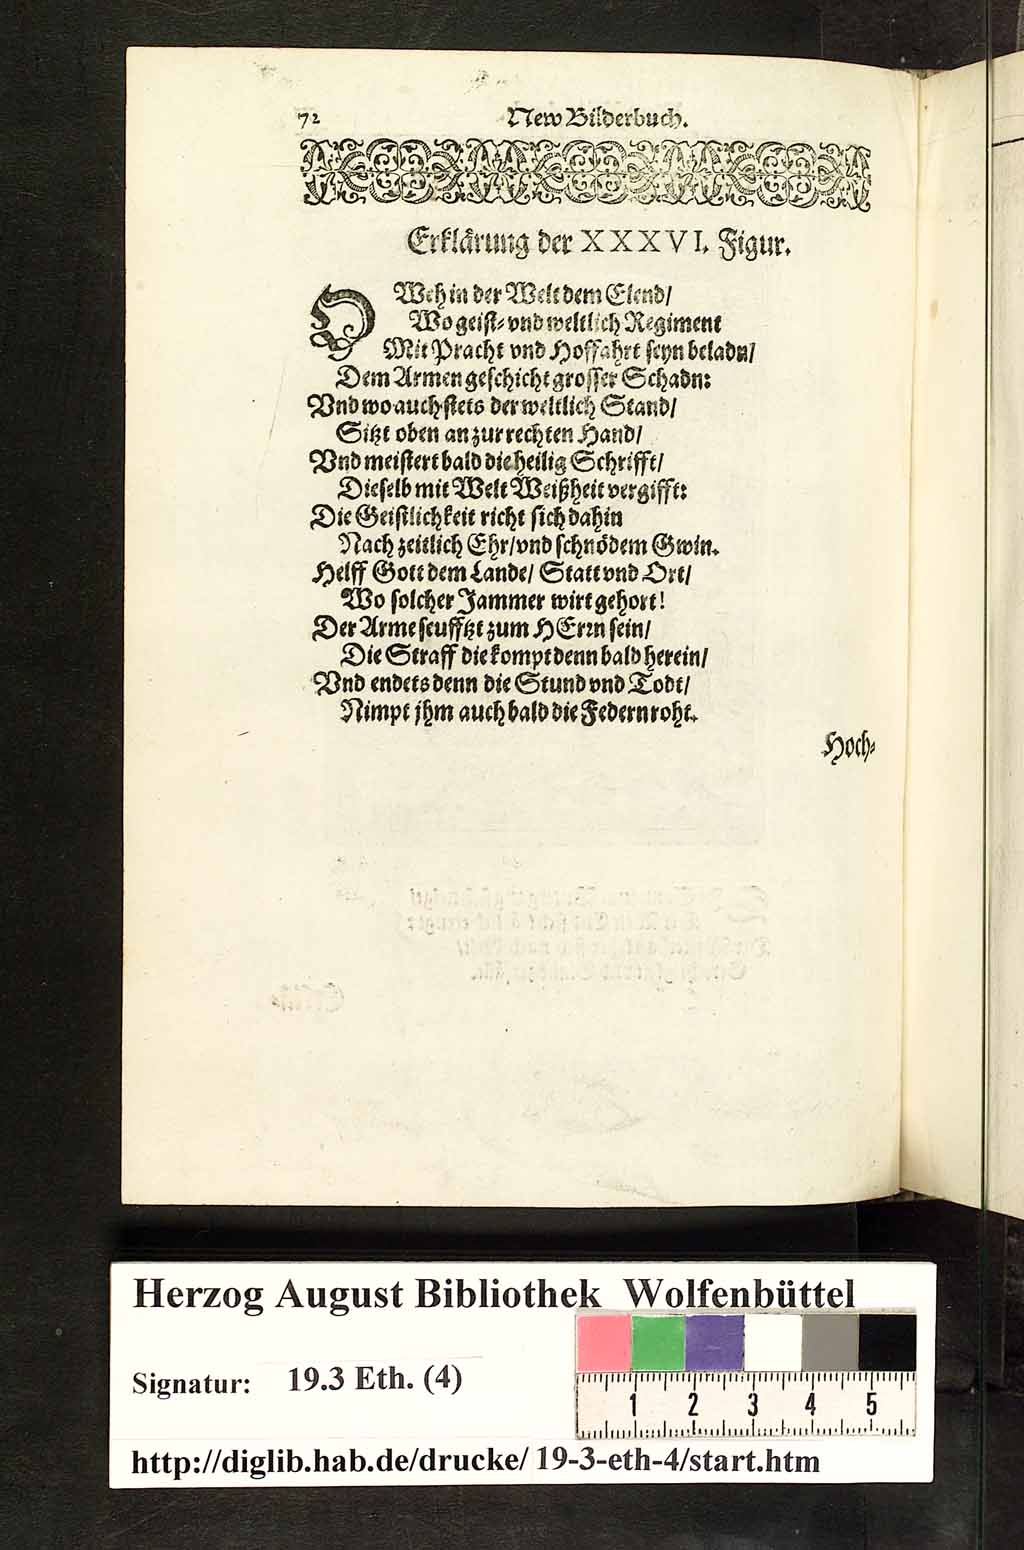 72 New Bilderbuch.
Erklärung der XXXVI. Figur.
O Weh in der Welt dem Elend/
Wo geist- vnd weltlich Regiment
Mit Pracht vnd Hoffahrt seyn beladn/
Dem Armen geschicht grosser Schadn:
Vnd wo auch stets der weltlich Stand/
Sitzt oben an zur rechten Hand/
Vnd meistert bald die heilig Schrifft/
Dieselb mit Welt Weißheit vergifft:
Die Geistlichkeit richt sich dahin
Nach zeitlich Ehr/ vnd schnödem Gwin.
Helff Gott dem Lande/ Statt vnd Ort/
Wo solcher Jammer wirt gehort!
Der Arme seufftzt zum HErrn sein/
Die Straff die kompt denn bald herein/
Vnd endets denn die Stund vnd Todt/
Nimpt jhm auch bald die Federn roht.
Hoch-
Herzog August Bibliothek Wolfenbüttel
Signatur: 19.3 Eth. (4)
1 2 3 4 5
http://diglib.hab.de/drucke/ 19-3-eth-4/start.htm